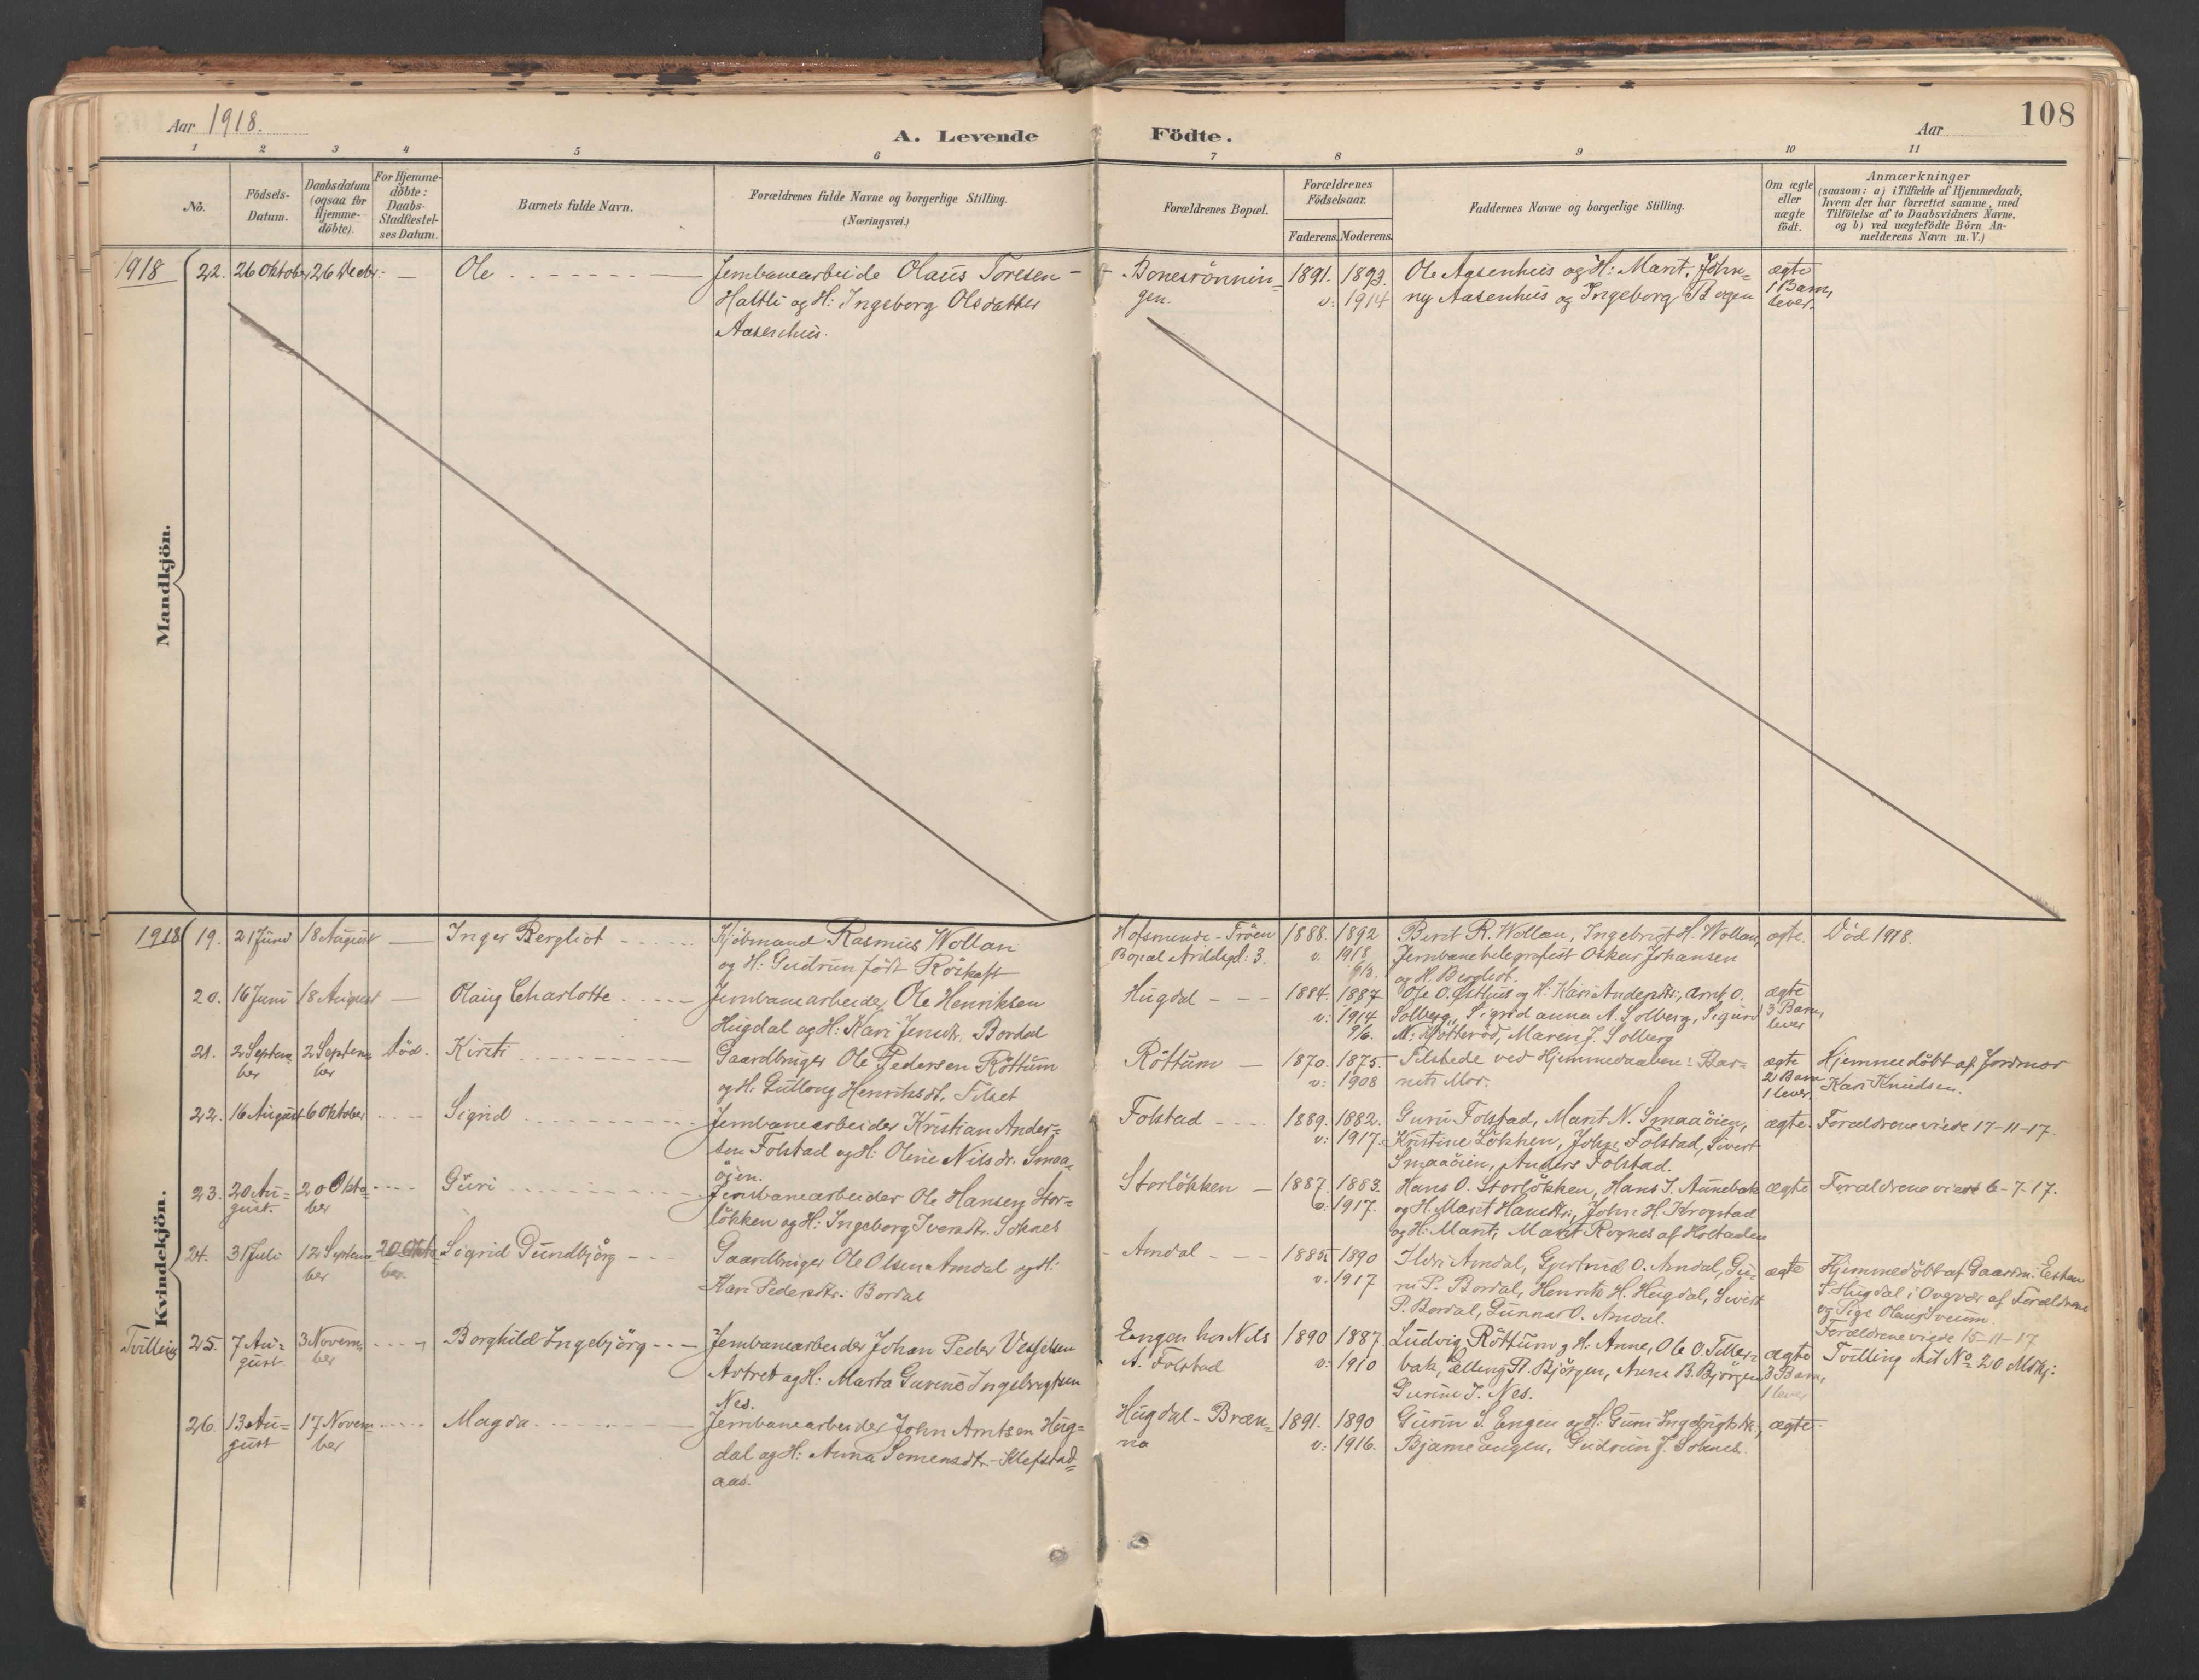 Aar 1918.
A. Levende Födte.
Aar
108
1 2 3 4 5 6 7 8 9 10 11
No.
Födsels-
Datum.
Daabsdatum
(ogsaa for
Hjemme-
döbte).
For Hjemme-
döbte:
Daabs-
Stadfæstel-
ses Datum.
Barnets fulde Navn.
Forældrenes fulde Navne og borgerlige Stilling.
(Næringsvei.)
Forældrenes Bopæl.
Forældrenes
Födselsaar.
Faderens. Moderens.
Faddernes Navne og borgerlige Stilling.
Om ægte
eller
uægte
födt.
Anmærkninger
(saasom: a) i Tilfælde af Hjemmedaab,
hvem der har forrettet samme, med
Tilföielse af to Daabsvidners Navne.
og b) ved uægtefödte Börn An-
melderens Navn m. V.)
Mandkjön.
1918
22. 26 Oktober 26 Decbr. — Ole
Jernbanearbeide Olaus Toresen
Haltli og H: Ingeborg Olsdatter
Aasenhus.
Bonesrönnin-
gen.
1891. 1893.
v: 1914
Ole Aasenhus og H: Marit, John-
ny Aasenhus og Ingeborg Bogen
ægte
1 Barn,
lever.
Kvindekjön.
1918
19. 21 Juni 18 August — Inger Bergliot
Kjöbmand Rasmus Wollan
og H: Gudrun født Röskaft
Hofsmunde-Tröen
1888. 1892
v. 1918
Berit R. Wollan, Ingebrigt H. Wollan,
Jernbanetelegrafist Oskar Johansen
og H. Bergliot.
ægte.
Död 1918.
20. 16 Juni 18 August — Olaug Charlotte
Jernbanearbeider Ole Henriksen
Hugdal og H: Kari Jensdr. Bordal
Hugdal
1884. 1887
v: 1914
9/6.
Ole O. Østhus og H: Kari Andersdtr., Arnt O.
Solberg, Sigrid Anna A. Solberg, Sigurd
Maren J. Solberg
ægte
3 Barn,
lever
21. 2 Septem-
ber
2 Septem-
ber
död. Kirsti
Gaardbruger Ole Pedersen Röttum
og H: Gullong Henriksdt. Tilset
Röttum
1870. 1875
v: 1908
Tilstede ved Hjemmedaaben: Bar-
nets Mor.
ægte
2 Barn
1 lever.
Hjemmedöbt af Jordmor
Kari Knudsen.
22. 16 August 6 Oktober Sigrid
Jernbanearbeider Kristian Ander-
sen Folstad og H: Oline Nilsdr. Smaa-
öien.
Folstad
1889. 1882.
v: 1917.
Guru Folstad, Marit N. Smaaöien,
Kristine Lökken, John Folstad, Sivert
Smaaöien, Anders Folstad.
ægte.
Forældrene viede 17-11-17.
23. 20 Au-
gust.
20 Okto-
ber
Guri
Jernbanearbeider Ole Hansen Stor-
lökken og H: Ingeborg Iversdtr. Soknes
Storlökken
1887. 1883.
v: 1917.
Hans O. Storlökken, Hans J. Aunebak
og H. Marit Hansdtr., John H. Krogstad
og H: Marit, Marit Rognes af Holtaalen
ægte
Forældrene viede 6-7-17.
24. 31 Juli 12 Septem-
ber
20 Okto-
ber
Sigrid Gundbjörg
Gaardbruger Ole Olsen Amdal og H:
Kari Pedersdtr. Bordal
Amdal
1885 1890
v. 1917
Ildri Amdal, Gjertrud O. Amdal, Gu-
ru P. Bordal, Henrik H. Hugdal, Sivert
P. Bordal, Gunnar O. Amdal.
ægte
Hjemmedöbt af Gaardm. Esten
P. Hugdal i Overvær af Forældrene
og Pige Olaug Sveum.
Forældrene viede 15-11-17
Tvilling
25. 7 Au-
gust
3 Novem-
ber
Borghild Ingebjörg
Jernbanearbeider Johan Peder Vesselsen
Avtret og H: Marta Gurine Ingebrigtsen
Nes.
Engen hos Nils
A. Folstad
1890 1887.
v: 1910
Ludvig Röttum og H. Anne, Ole O. Tiller-
bak, Elling H. Björgen, Anne B. Björgen
Gurine J. Nes.
ægte
3 Barn,
1 lever
Tvilling til No 20 Mdkj:
26. 13 Au-
gust
17 Novem-
ber
Magda
Jernbanearbeider John Arntsen Hug-
dal og H: Anna Simensdtr. Klefstad-
aas.
Hugdal-Bræn-
na
1891. 1890
v: 1916.
Gurin S. Engen og H: Guru Ingebrigtsdtr.,
Bjarne Engen, Gudrun J. Soknes.
ægte